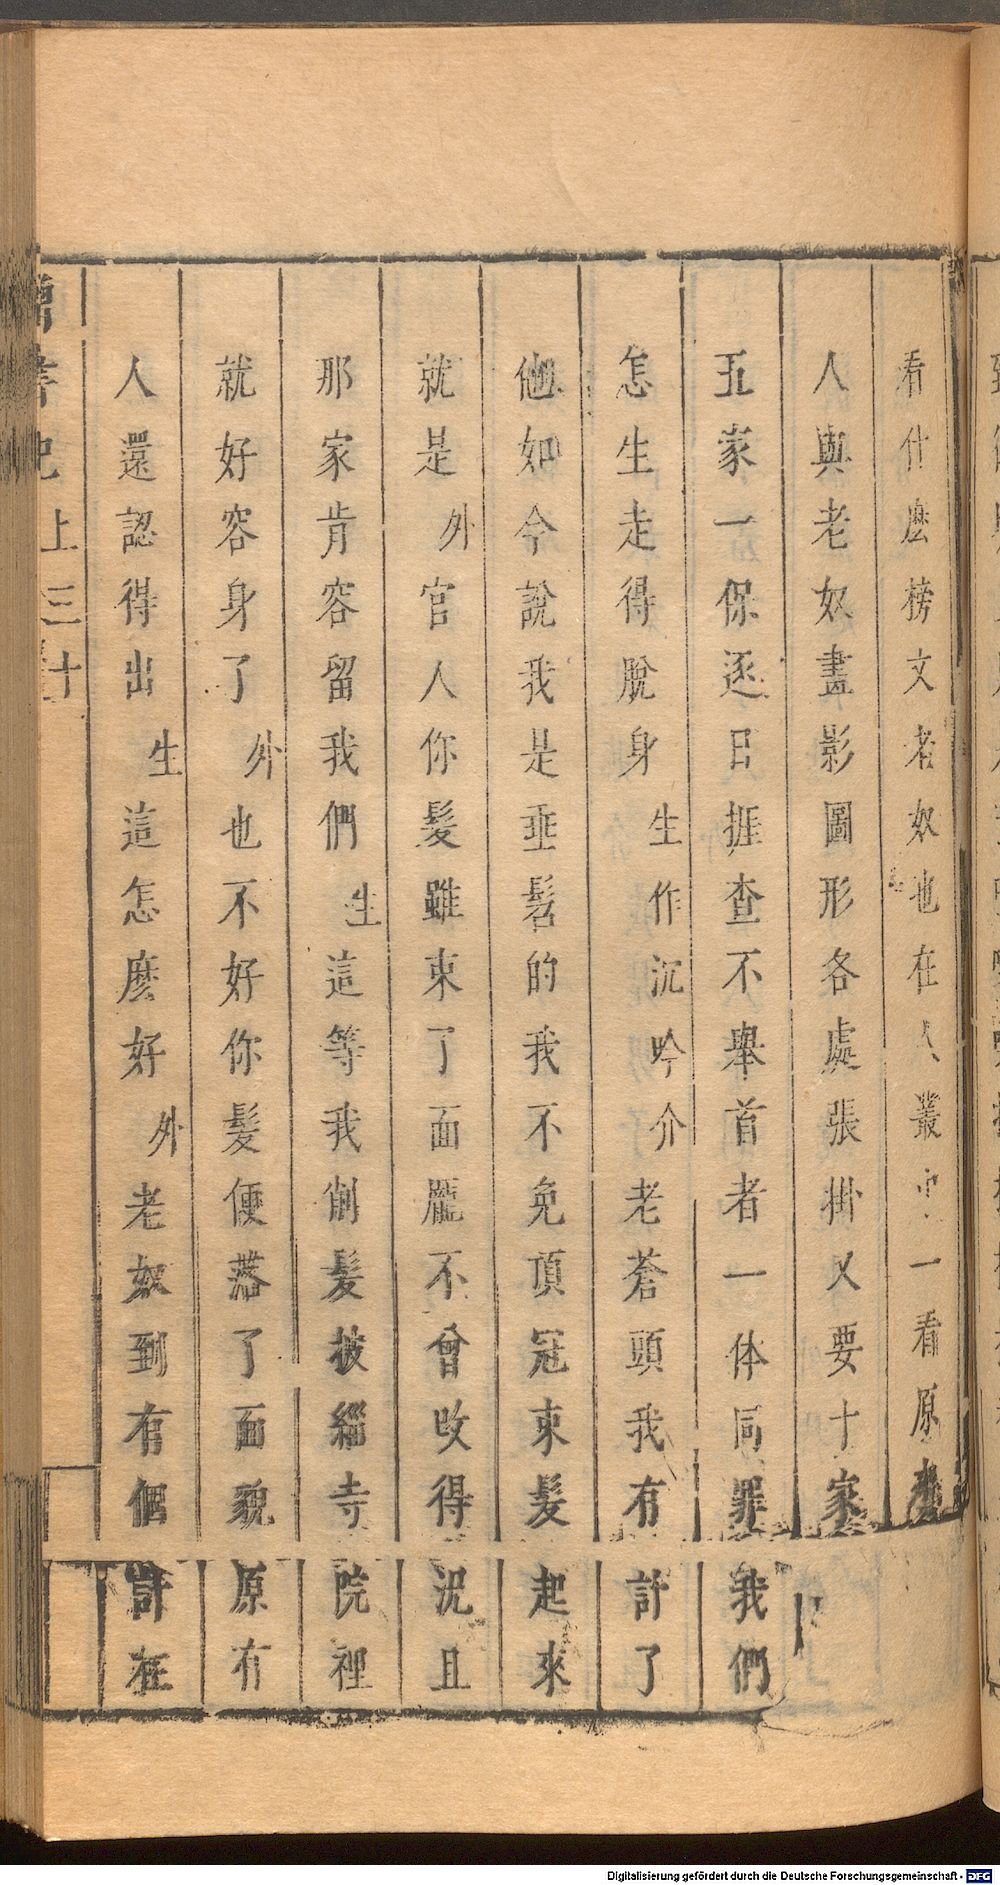 看什麽榜文老奴也在人叢中一看原來
人與老奴畫影圖形各處張掛又要十家
五家一保逐日捱查不舉首者一体同罪我們
怎生走得脫身生作沉吟介老蒼頭我有計了
他如今說我是垂髫的我不免頂冠束髮起來
就是外官人你髮雖束了面龐不曾改得況且
那家肯容留我們生這等我削髮披緇寺院裡
就好容身了外也不好你髮便落了面貌原有
人還認得出生這怎麽好外老奴到有個計在
上 三十
Digitalisierung gefördert durch die Deutsche Forschungsgemeinschaft - DFG